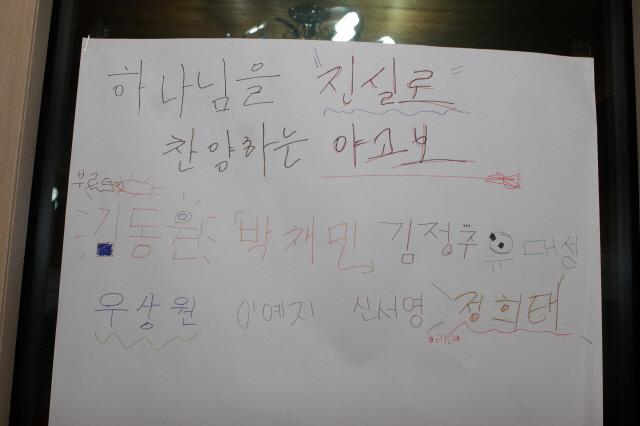 하나님을 "진실로"
찬양하는 야고보
기동원 박채민 김정주 유대성
우상원 이예지 신서영 정희태
*리더*